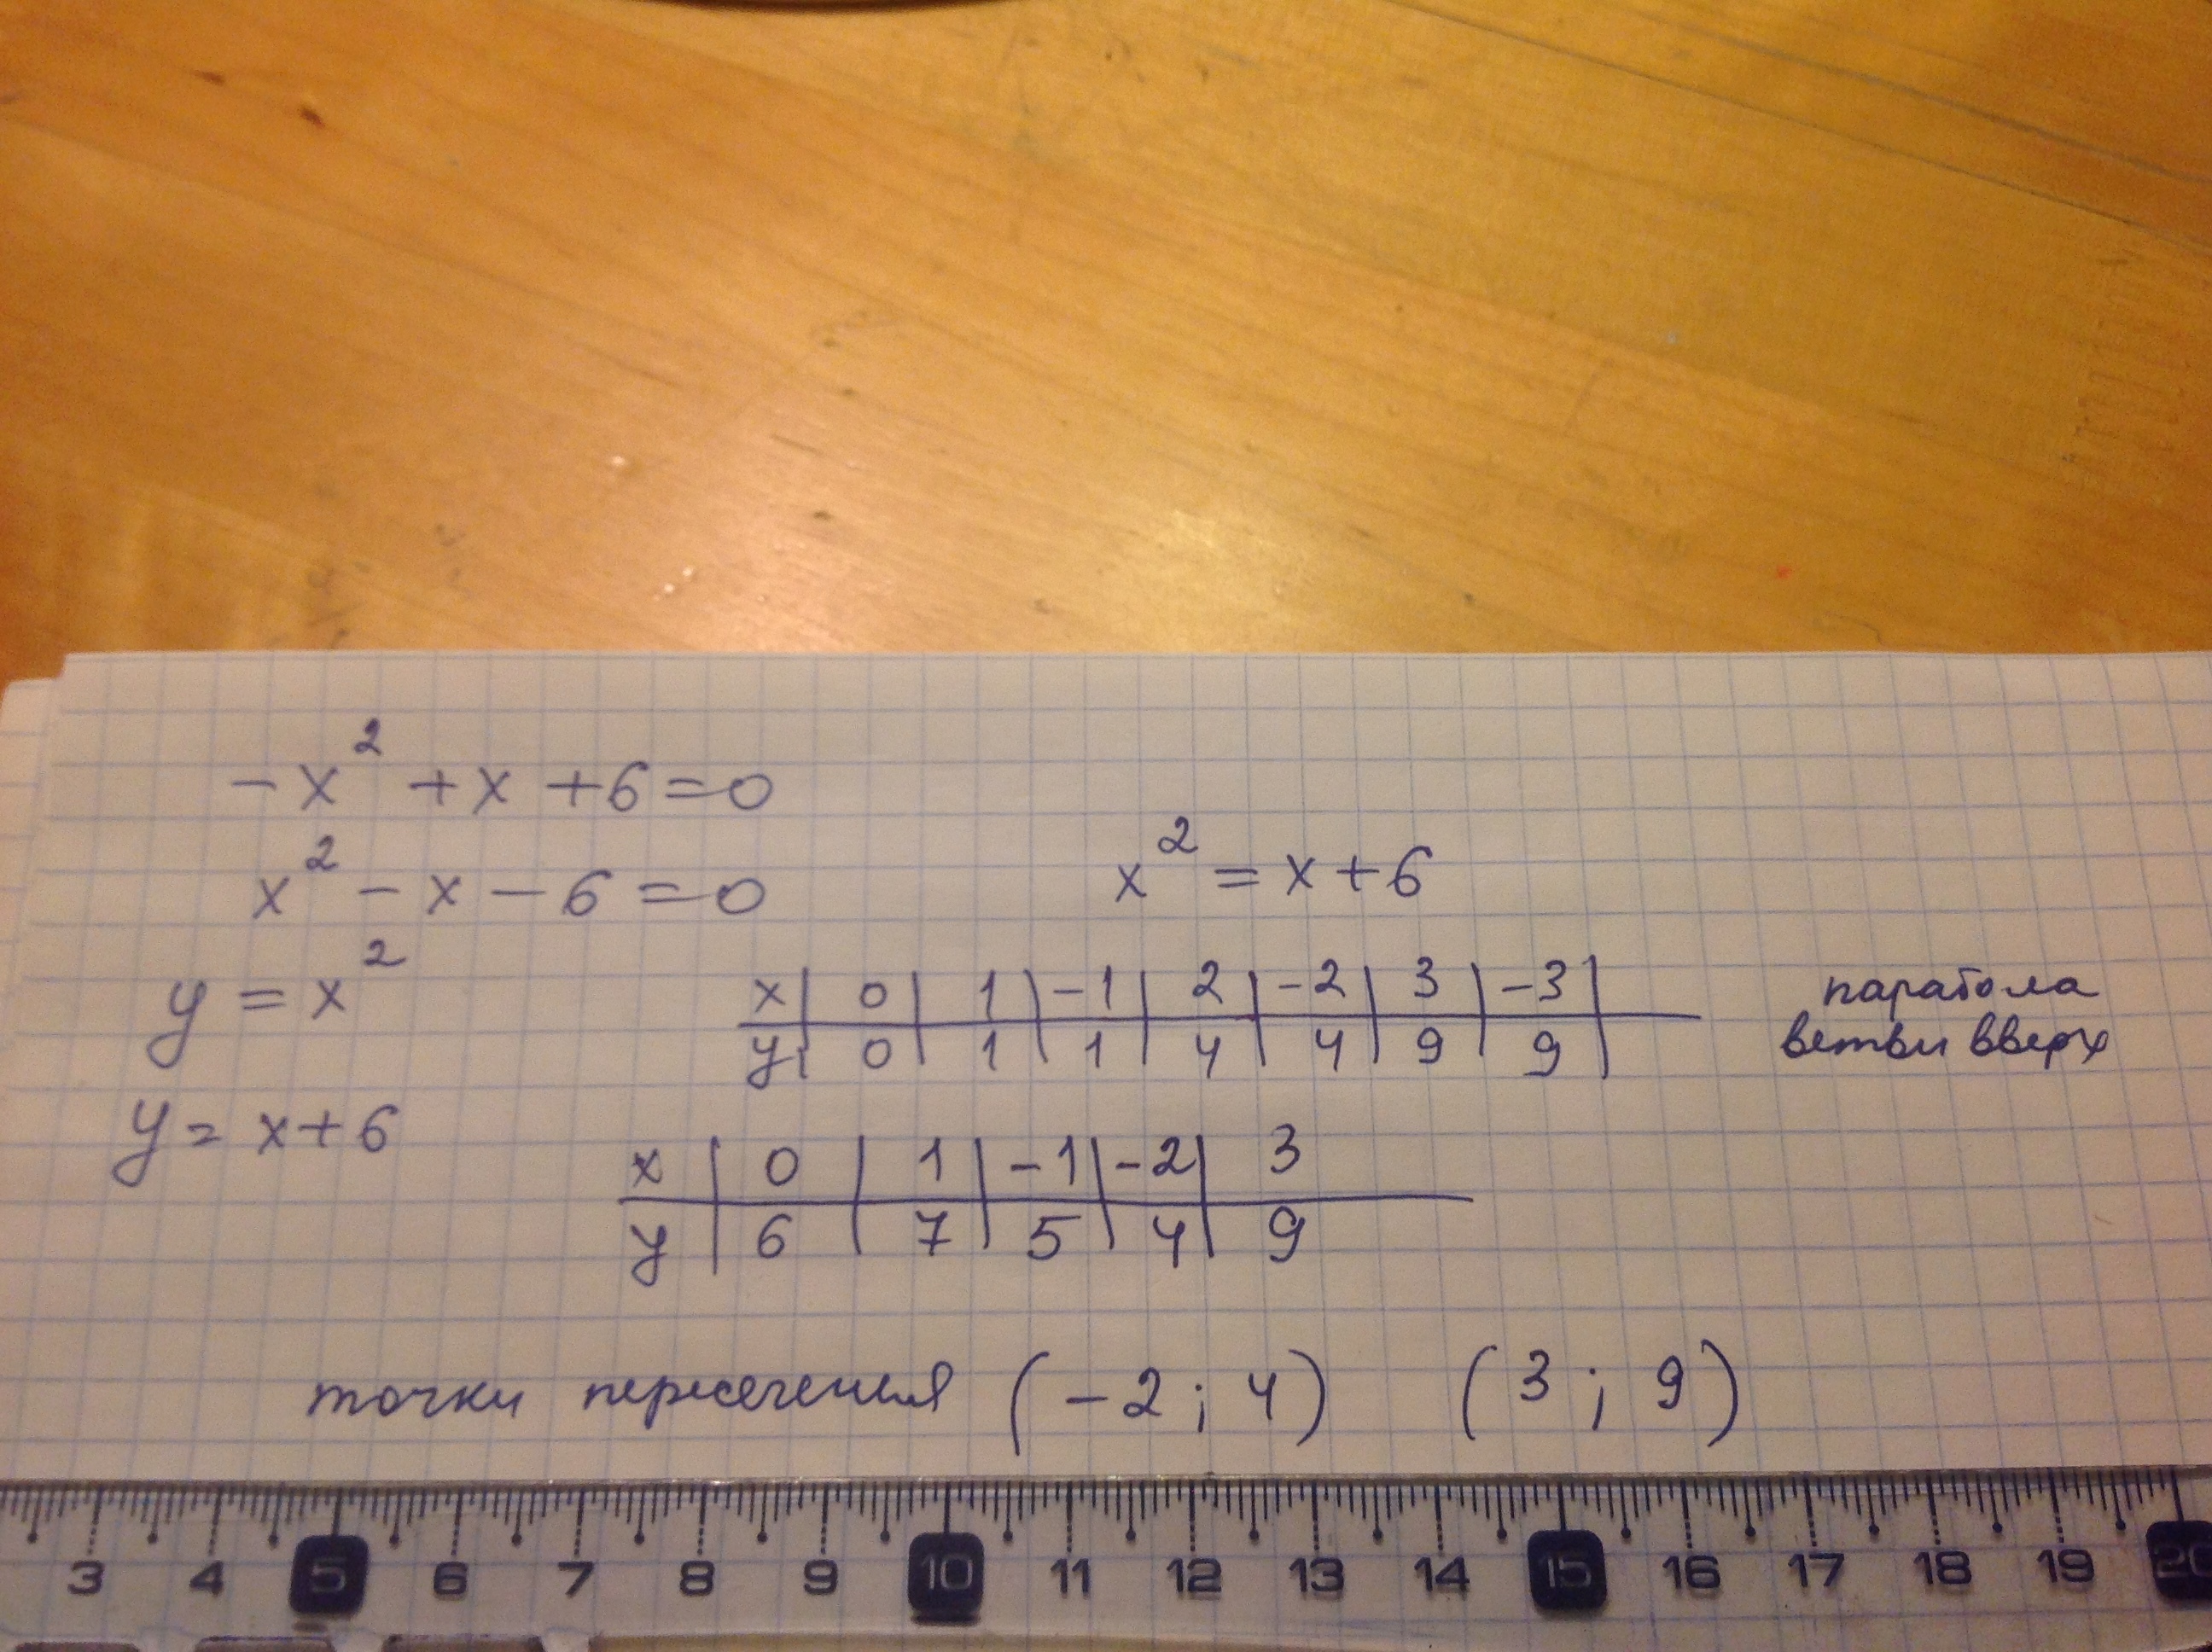 -x² + x + 6 = 0
x² - x - 6 = 0
x² = x + 6
y = x²
x | 0 | 1 | -1 | 2 | -2 | 3 | -3 |
y | 0 | 1 | 1 | 4 | 4 | 9 | 9 |
парабола
ветви вверх
y = x + 6
x | 0 | 1 | -1 | -2 | 3
y | 6 | 7 | 5 | 4 | 9
точки пересечения (-2; 4) (3; 9)
3 4 5 6 7 8 9 10 11 12 13 14 15 16 17 18 19 20